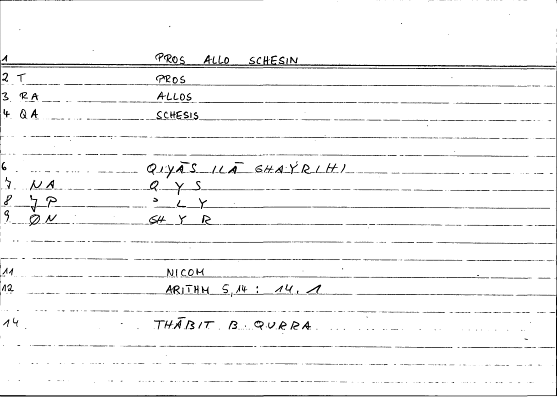 1 PROS ALLO SCHESIN
2 T PROS
3 RA ALLOS
4 QA SCHESIS
6 QIYĀS ILĀ GHAYRIHI
7 NA Q Y S
8 7P ʾ L Y
9 ØN GH Y R
11 NICOM
12 ARITHM 5,14 : 14,1
14 THĀBIT B. QURRA